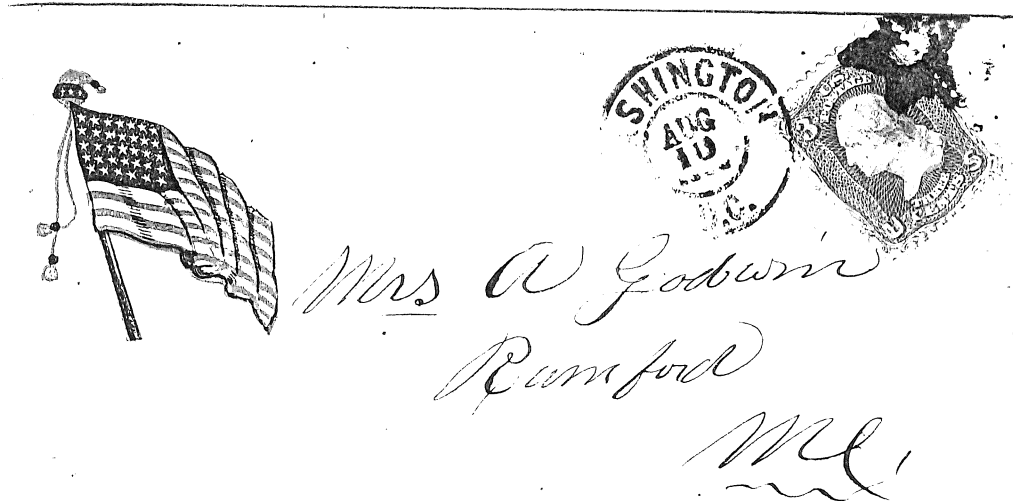 SHINGTON
AUG
10
D.C.
Mrs A Godwin
Rumford
Me.